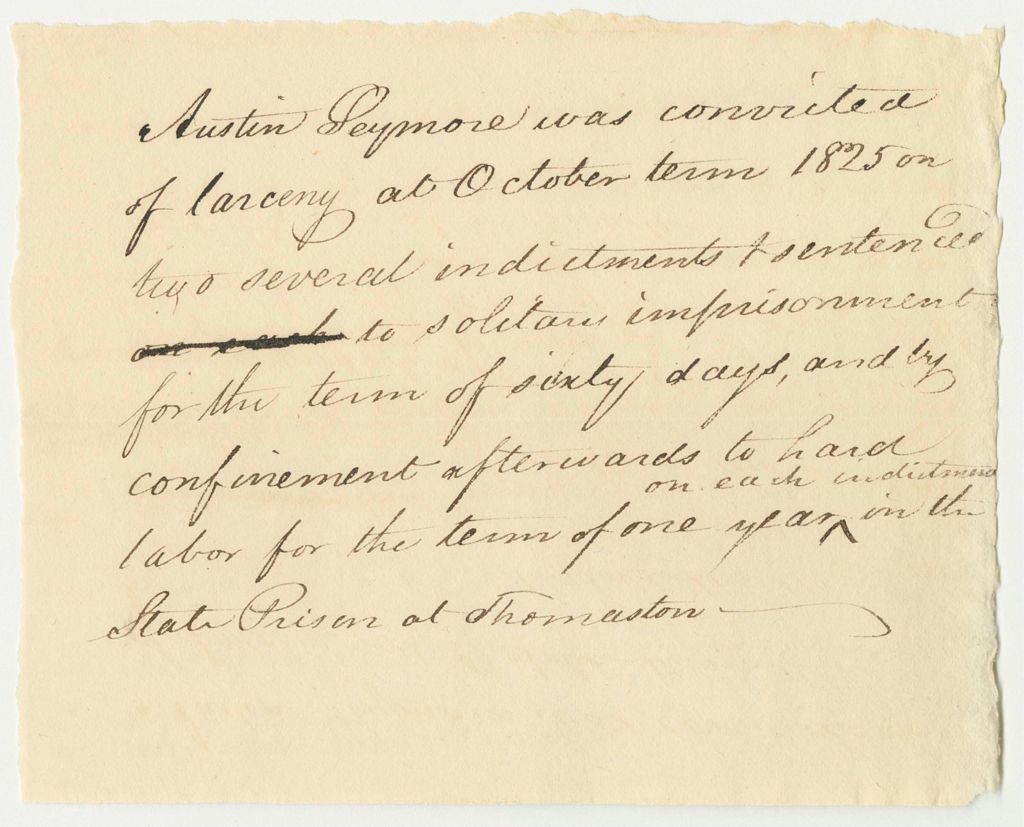 Austin Seymore was convicted
of larceny at October term 1825 on
two several indictments & sentenced
on each to solitary imprisonment
for the term of sixty days, and by
confinement afterwards to hard
on each indictment
labor for the term of one year ^ in the
State Prison at Thomaston